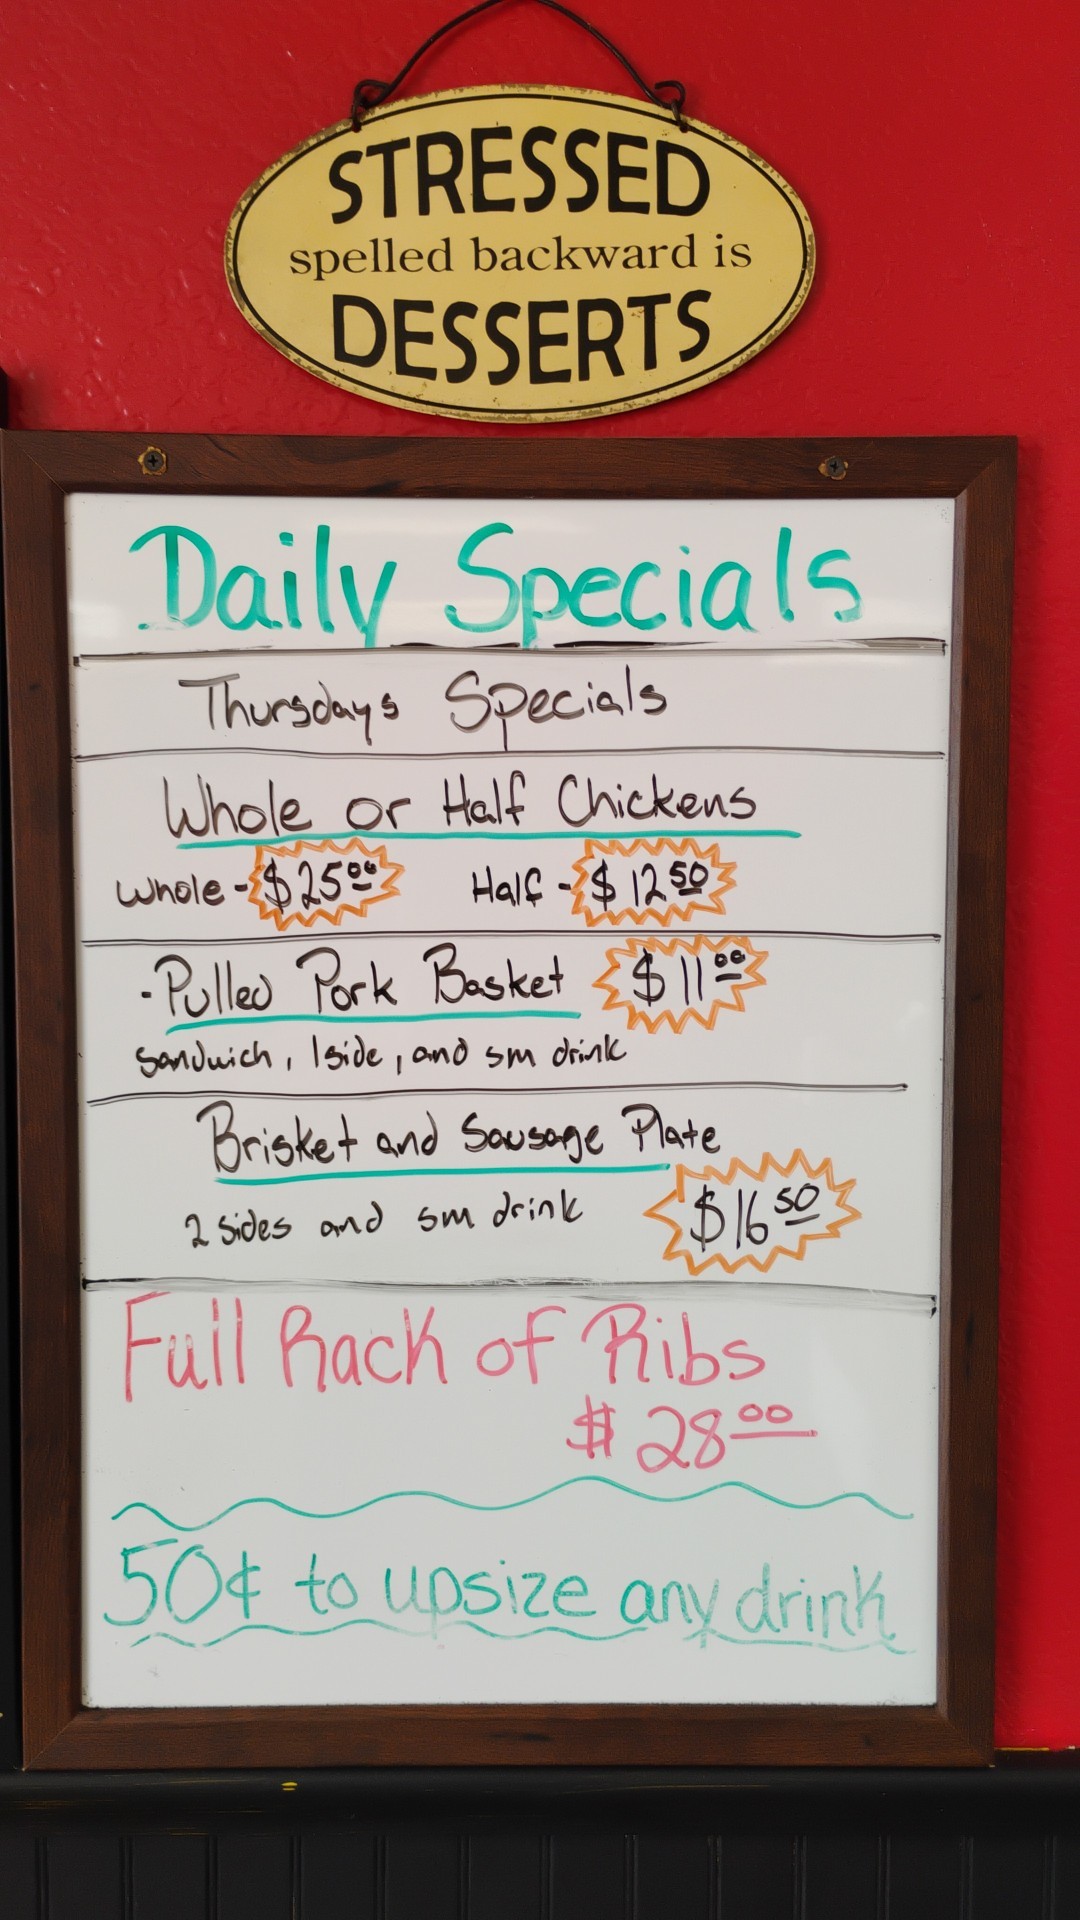 STRESSED
spelled backward is
DESSERTS
Daily Specials
Thursdays Specials
Whole or Half Chickens
Whole - $25⁰⁰ Half - $12⁵⁰
- Pulled Pork Basket $11⁰⁰
sandwich, 1 side, and sm drink
Brisket and Sausage Plate
2 sides and sm drink $16⁵⁰
Full Rack of Ribs
$28⁰⁰
50¢ to upsize any drink